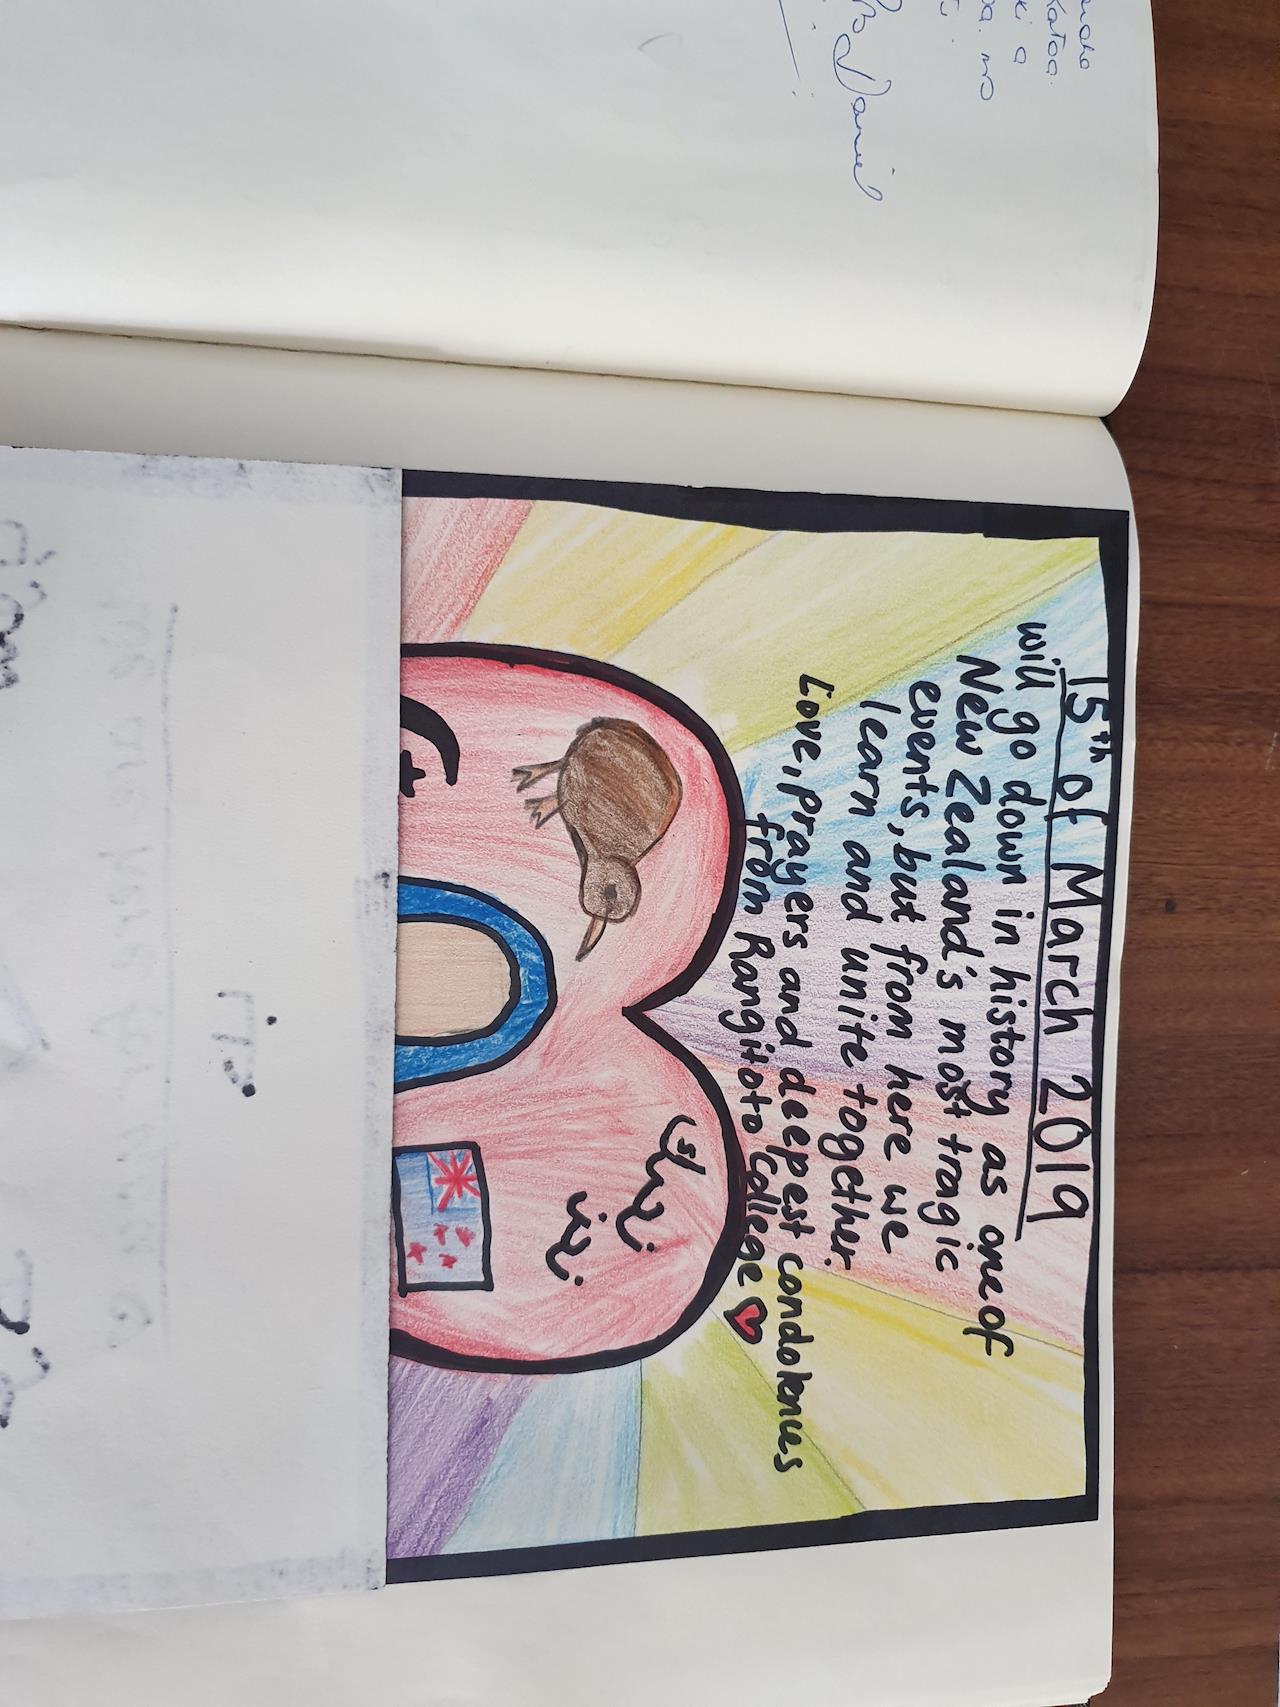 katoa.
ki a
Daniel
15th of March 2019
will go down in history as one of
New Zealand's most tragic
events, but from here we
learn and unite together.
Love, prayers and deepest condolences
from Rangitoto College